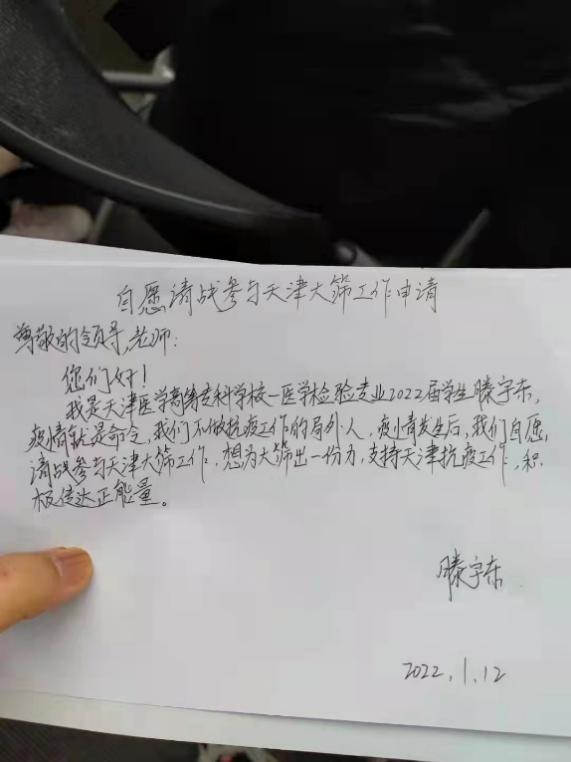 自愿请战参与天津大筛工作申请
尊敬的领导,老师:
您们好!
我是天津医学高等专科学校一医学检验专业2022届学生滕宇东,
疫情就是命令,我们不做抗疫工作的局外人,疫情发生后,我们自愿,
请战参与天津大筛工作,想为大筛出一份力,支持天津抗疫工作,积
极传达正能量。
滕宇东
2022.1.12